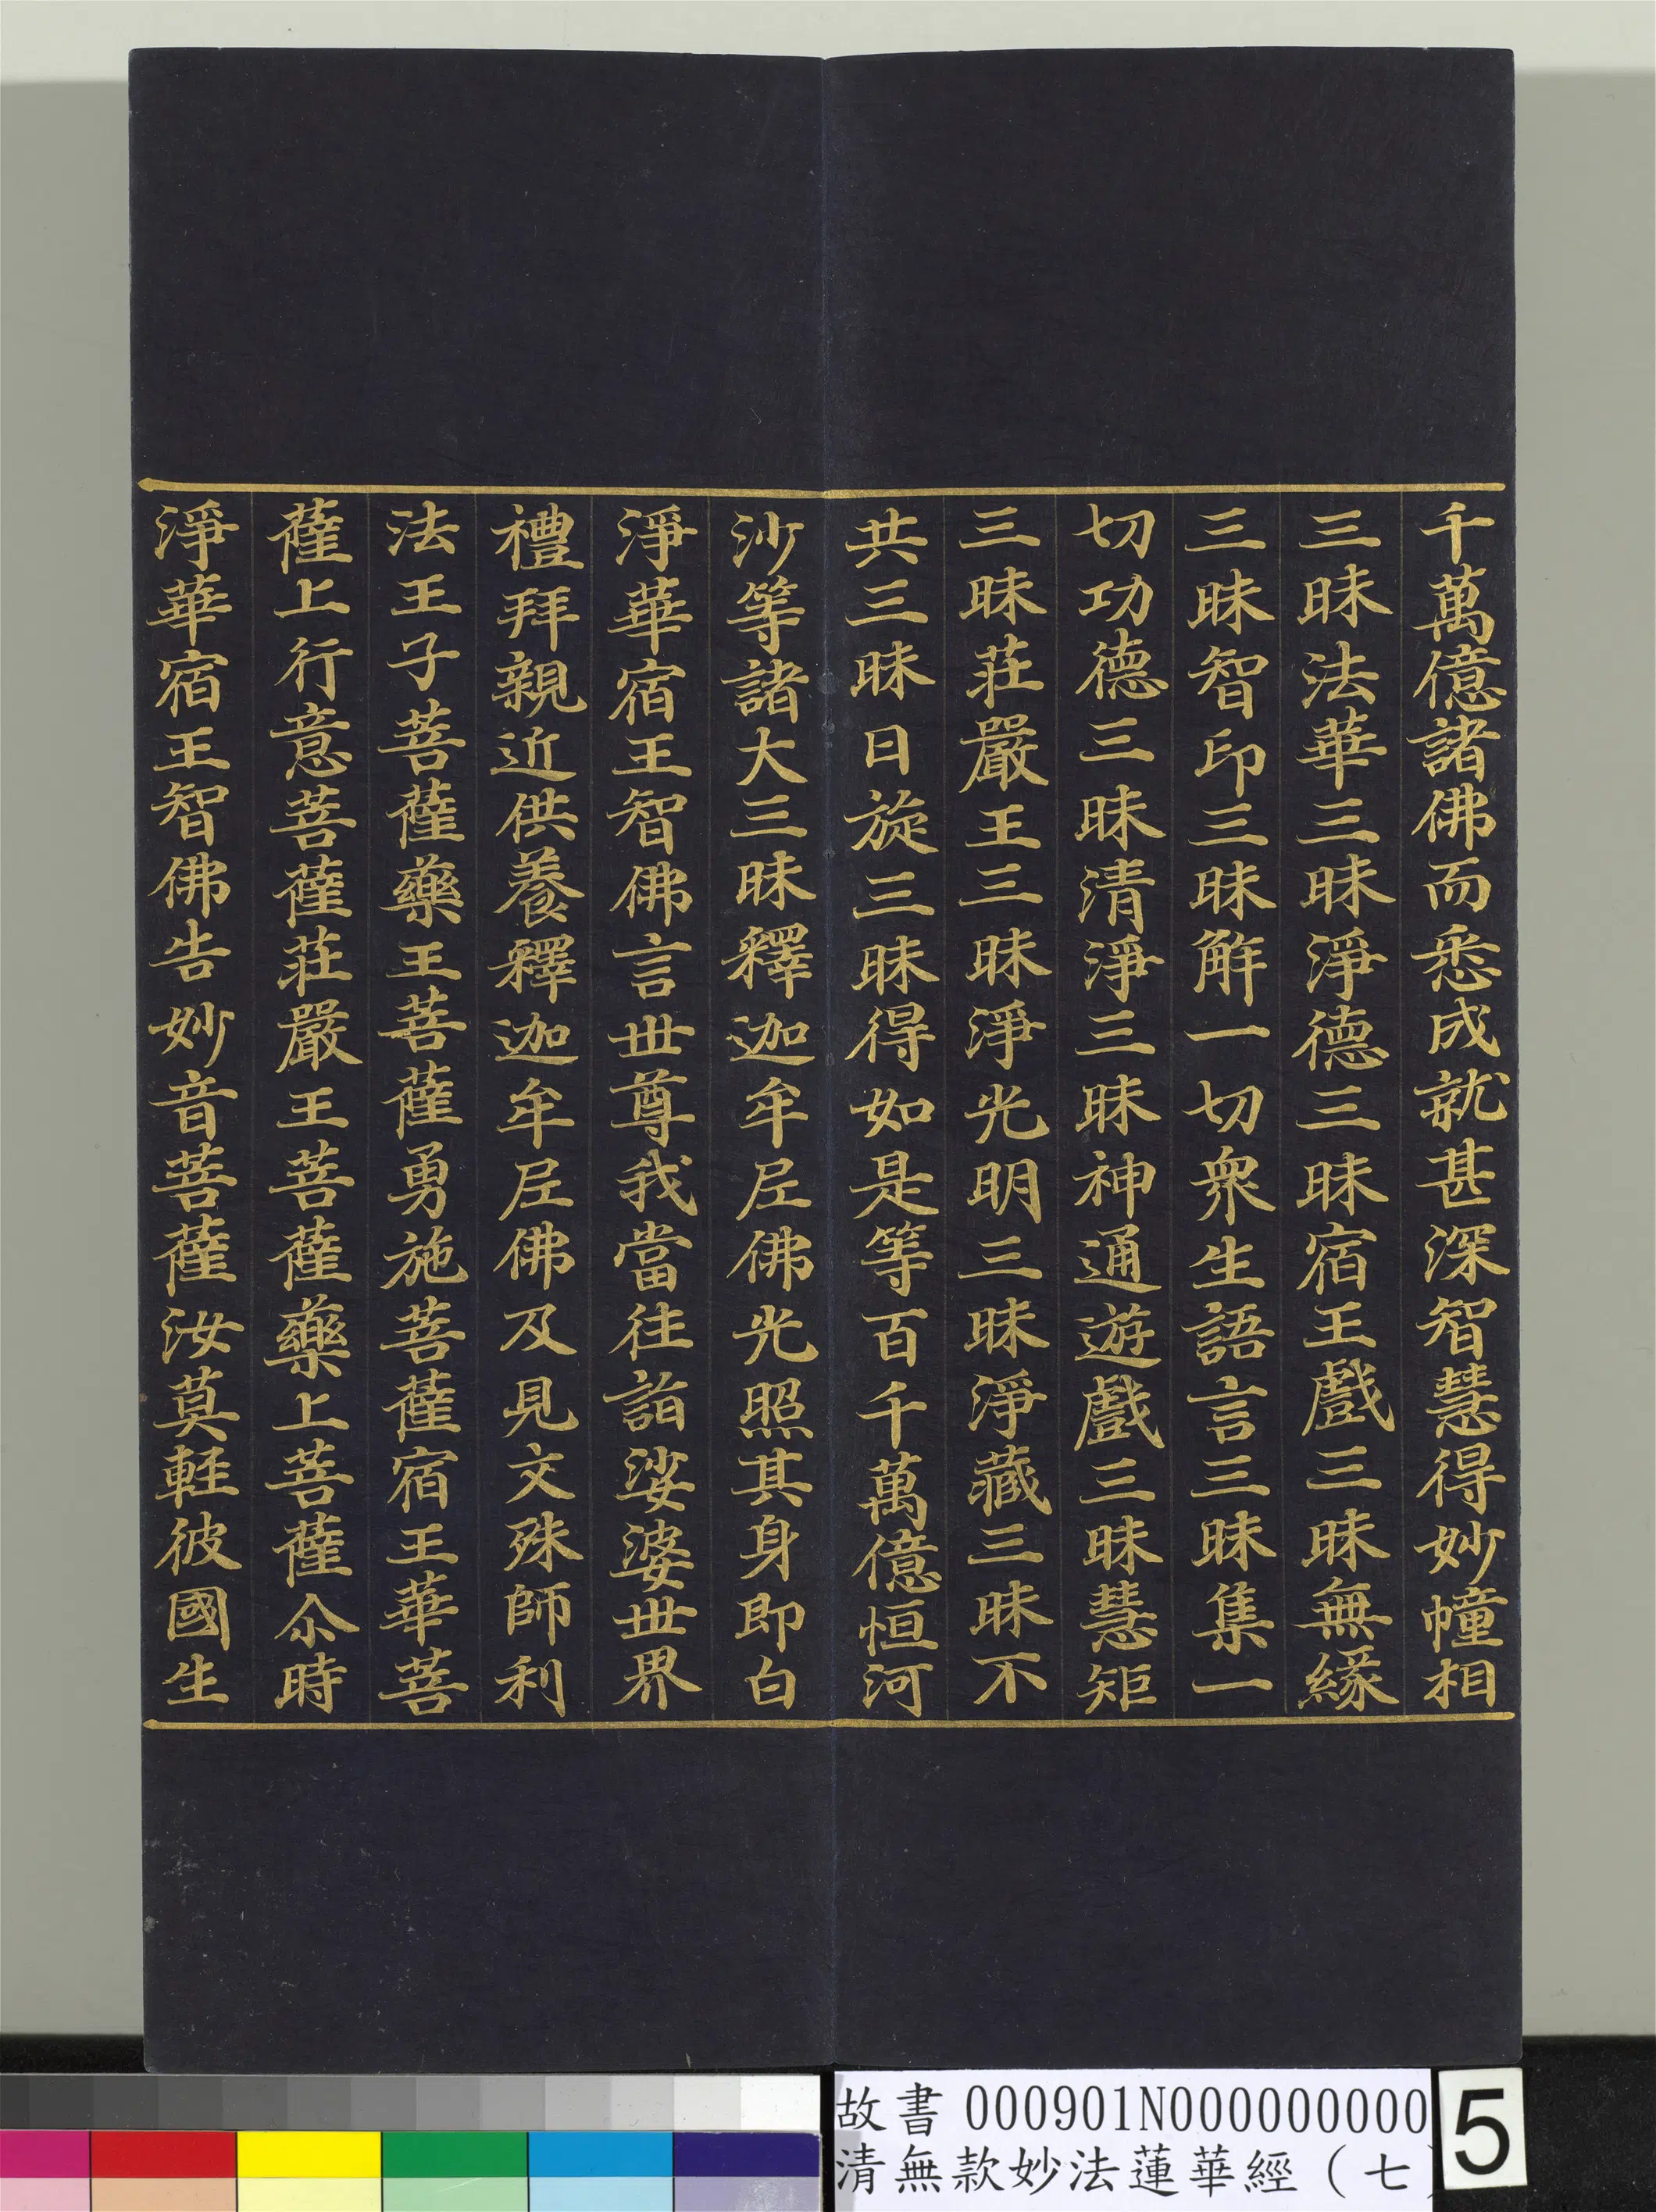 千萬億諸佛而悉成就甚深智慧得妙幢相
三昧法華三昧淨德三昧宿王戲三昧無緣
三昧智印三昧解一切眾生語言三昧集一
切功德三昧清淨三昧神通遊戲三昧慧炬
三昧莊嚴王三昧淨光明三昧淨藏三昧不
共三昧日旋三昧得如是等百千萬億恒河
沙等諸大三昧釋迦牟尼佛光照其身即白
淨華宿王智佛言世尊我當往詣娑婆世界
禮拜親近供養釋迦牟尼佛及見文殊師利
法王子菩薩藥王菩薩勇施菩薩宿王華菩
薩上行意菩薩莊嚴王菩薩藥上菩薩尒時
淨華宿王智佛告妙音菩薩汝莫輕彼國生
故書 000901N000000000
清無款妙法蓮華經（七）
5